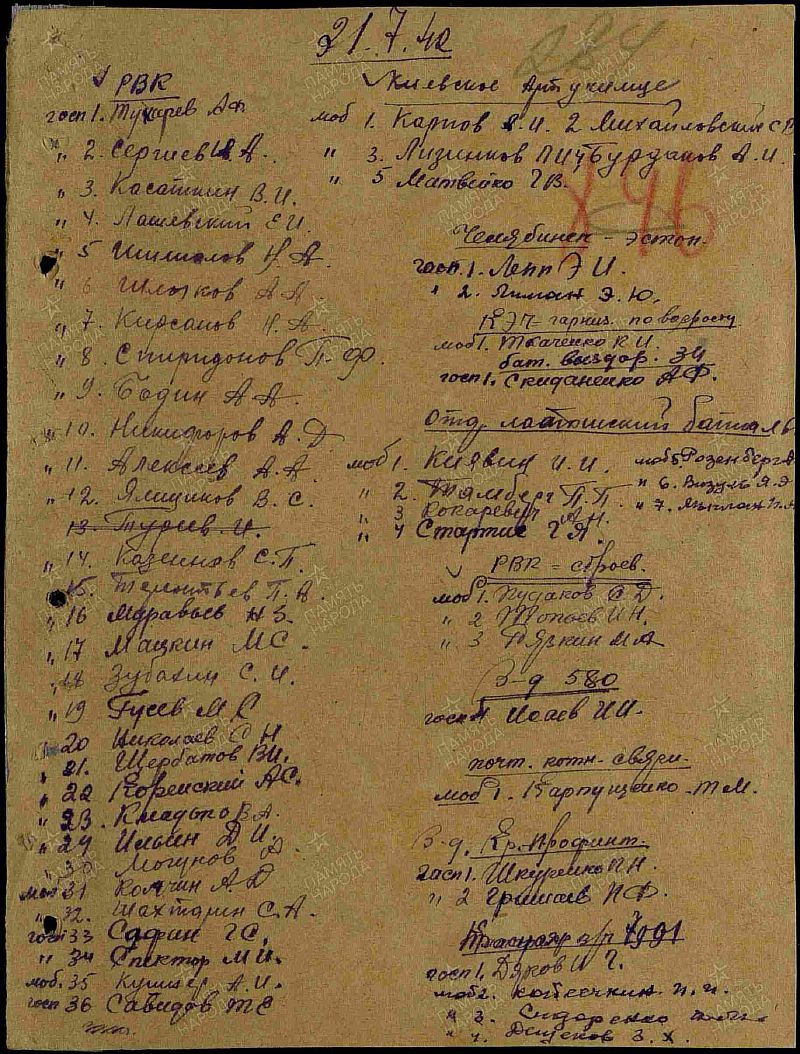 21.7.42
224
РВК
госп 1. Тухарев АФ
„ 2. Сергиев И А.
„ 3. Касаткин В.И.
„ 4. Лашевский Е И.
„ 5 Шишалов Н А.
„ 6 Шлотков А А.
„ 7. Кирсанов Н. А.
„ 8. Спиридонов П. Ф.
„ 9. Бодин А А
„ 10. Никифоров А. Д
„ 11. Алексеев А.А.
„ 12. Ялищиков В. С.
13. Турсев И.
„ 14. Казеннов С.П.
„ 15. Терентьев П. А.
„ 16 Муравьев Н З.
„ 17 Мацкин М С.
„ 18 Зубахин С. И.
„ 19 Гусев М С
„ 20 Николаев С Н
„ 21. Щербатов В И.
„ 22 Корейский А С.
„ 23. В А.
„ 24 Ильин Д И.
„ 30 Могунов
моб 31 Колчин А Д
„ 32. Шахтарин С. А.
госп 33 Сафин Г С.
„ 34 Спектор М И.
моб. 35 Кушнер А.И.
госп 36 Савидов Т С
Киевское Арт училище
моб 1. Карпов И. 2 Михайловский С В
„ 3. Лизинков П И 4 Бурдаков А. И.
„ 5 Матвейко Г В.
х 46
Челябинск - эстон.
госп. 1. Лепп Э И.
„ 2. Лиман Э. Ю.
КЭЧ - гарниз. по возрасту
моб 1. Ткаченко К И.
бат. выздор. 34
госп 1. Скиданенко А Ф.
Отд. латышский баталь
моб 1. Киявин И. И. моб 5. Розенберг
„ 2. Тамберг П. П. „ 6. Визуль Я. Э
„ 3 Кокаревич А Н.
„ 4 Стартис Г Я. „ 7.
РВК = строев.
моб 1. Пудаков С Д.
„ 2 Топоев И Н.
„ 3 Тяркин М А
З-д 580
госп 1 Исаев И И.
почт. котн - связи.
моб 1. Карпущенко Т М.
З-д. Кр. Профинт.
госп 1. Шкуренко П Н.
„ 2 Гришаев П Ф.
Краснояр з/п 7991
госп 1. Дяков И Г.
моб 2. Копеечкин П. И.
„ 3. Сидоренко
„ 4. З. Х.
ПАМЯТЬ НАРОДА